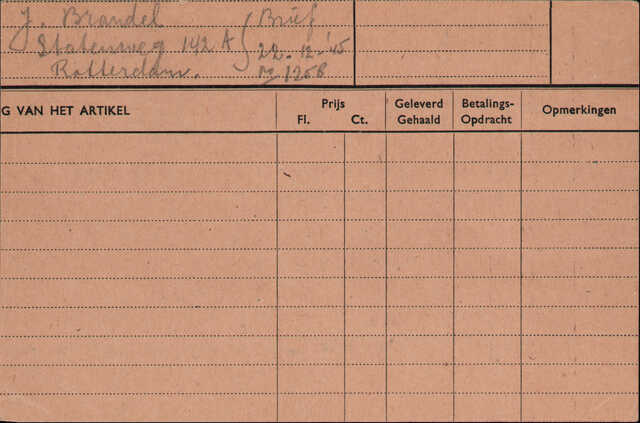 J. Brandel
Statenweg 142 A
Rotterdam.
Brief
22-12-'45
1258
G VAN HET ARTIKEL
Prijs
Fl. Ct.
Geleverd
Gehaald
Betalings-
Opdracht
Opmerkingen